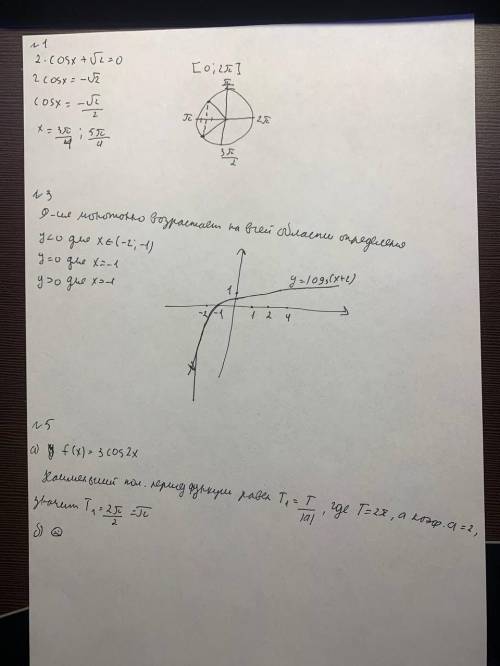 №1
2·cosx+√2=0
2cosx=-√2
cosx=-√2/2
x=3π/4; 5π/4
[0;2π]
π/2
π
2π
3π/2
№3
Ф-ия монотонно возрастает на всей области определения
y<0 для x∈(-2;-1)
y=0 для x=-1
y>0 для x=-1
1
-2 -1 1 2 4
№5
а) f(x)=3cos2x
Наименьший пол. период функции равен T₁=T/|a|, где T=2π, а коэф. a=2,
значит T₁=2π/2=π
б) ☹